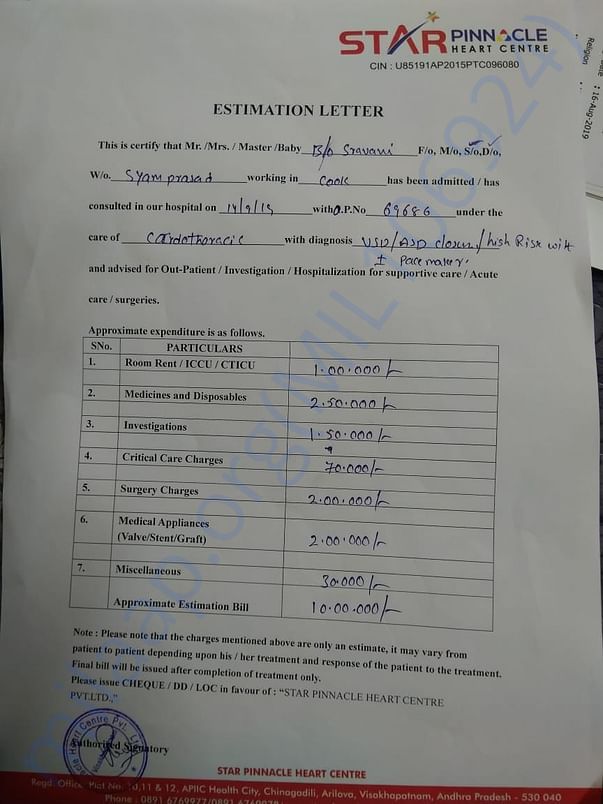 STAR PINNACLE
HEART CENTRE
CIN : U85191AP2015PTC096080
: 16-Aug-2019
Religion
ESTIMATION LETTER
This is certify that Mr. /Mrs. / Master /Baby B/o Sravani F/o, M/o, S/o,D/o,
W/o. Syam prasad working in Cook has been admitted / has
consulted in our hospital on 14/9/19 with O.P.No 69686 under the
care of Cardothoracic with diagnosis VSD/ASD closure/high Risk with
± Pacemaker.
and advised for Out-Patient / Investigation / Hospitalization for supportive care / Acute
care / surgeries.
Approximate expenditure is as follows.
SNo. PARTICULARS
1. Room Rent / ICCU / CTICU 1.00.000/-
2. Medicines and Disposables 2.50.000/-
3. Investigations 1.50.000/-
4. Critical Care Charges 70.000/-
5. Surgery Charges 2.00.000/-
6. Medical Appliances
(Valve/Stent/Graft) 2.00.000/-
7. Miscellaneous 30.000/-
Approximate Estimation Bill 10.00.000/-
Note : Please note that the charges mentioned above are only an estimate, it may vary from
patient to patient depending upon his / her treatment and response of the patient to the treatment.
Final bill will be issued after completion of treatment only.
Please issue CHEQUE / DD / LOC in favour of : “STAR PINNACLE HEART CENTRE
PVT.LTD.,”
Authorized Signatory
STAR PINNACLE HEART CENTRE
Regd. Office: Plot No. 10,11 & 12, APIIC Health City, Chinagadili, Arilova, Visakhapatnam, Andhra Pradesh - 530 040
Phone : 0891 6769977/0891